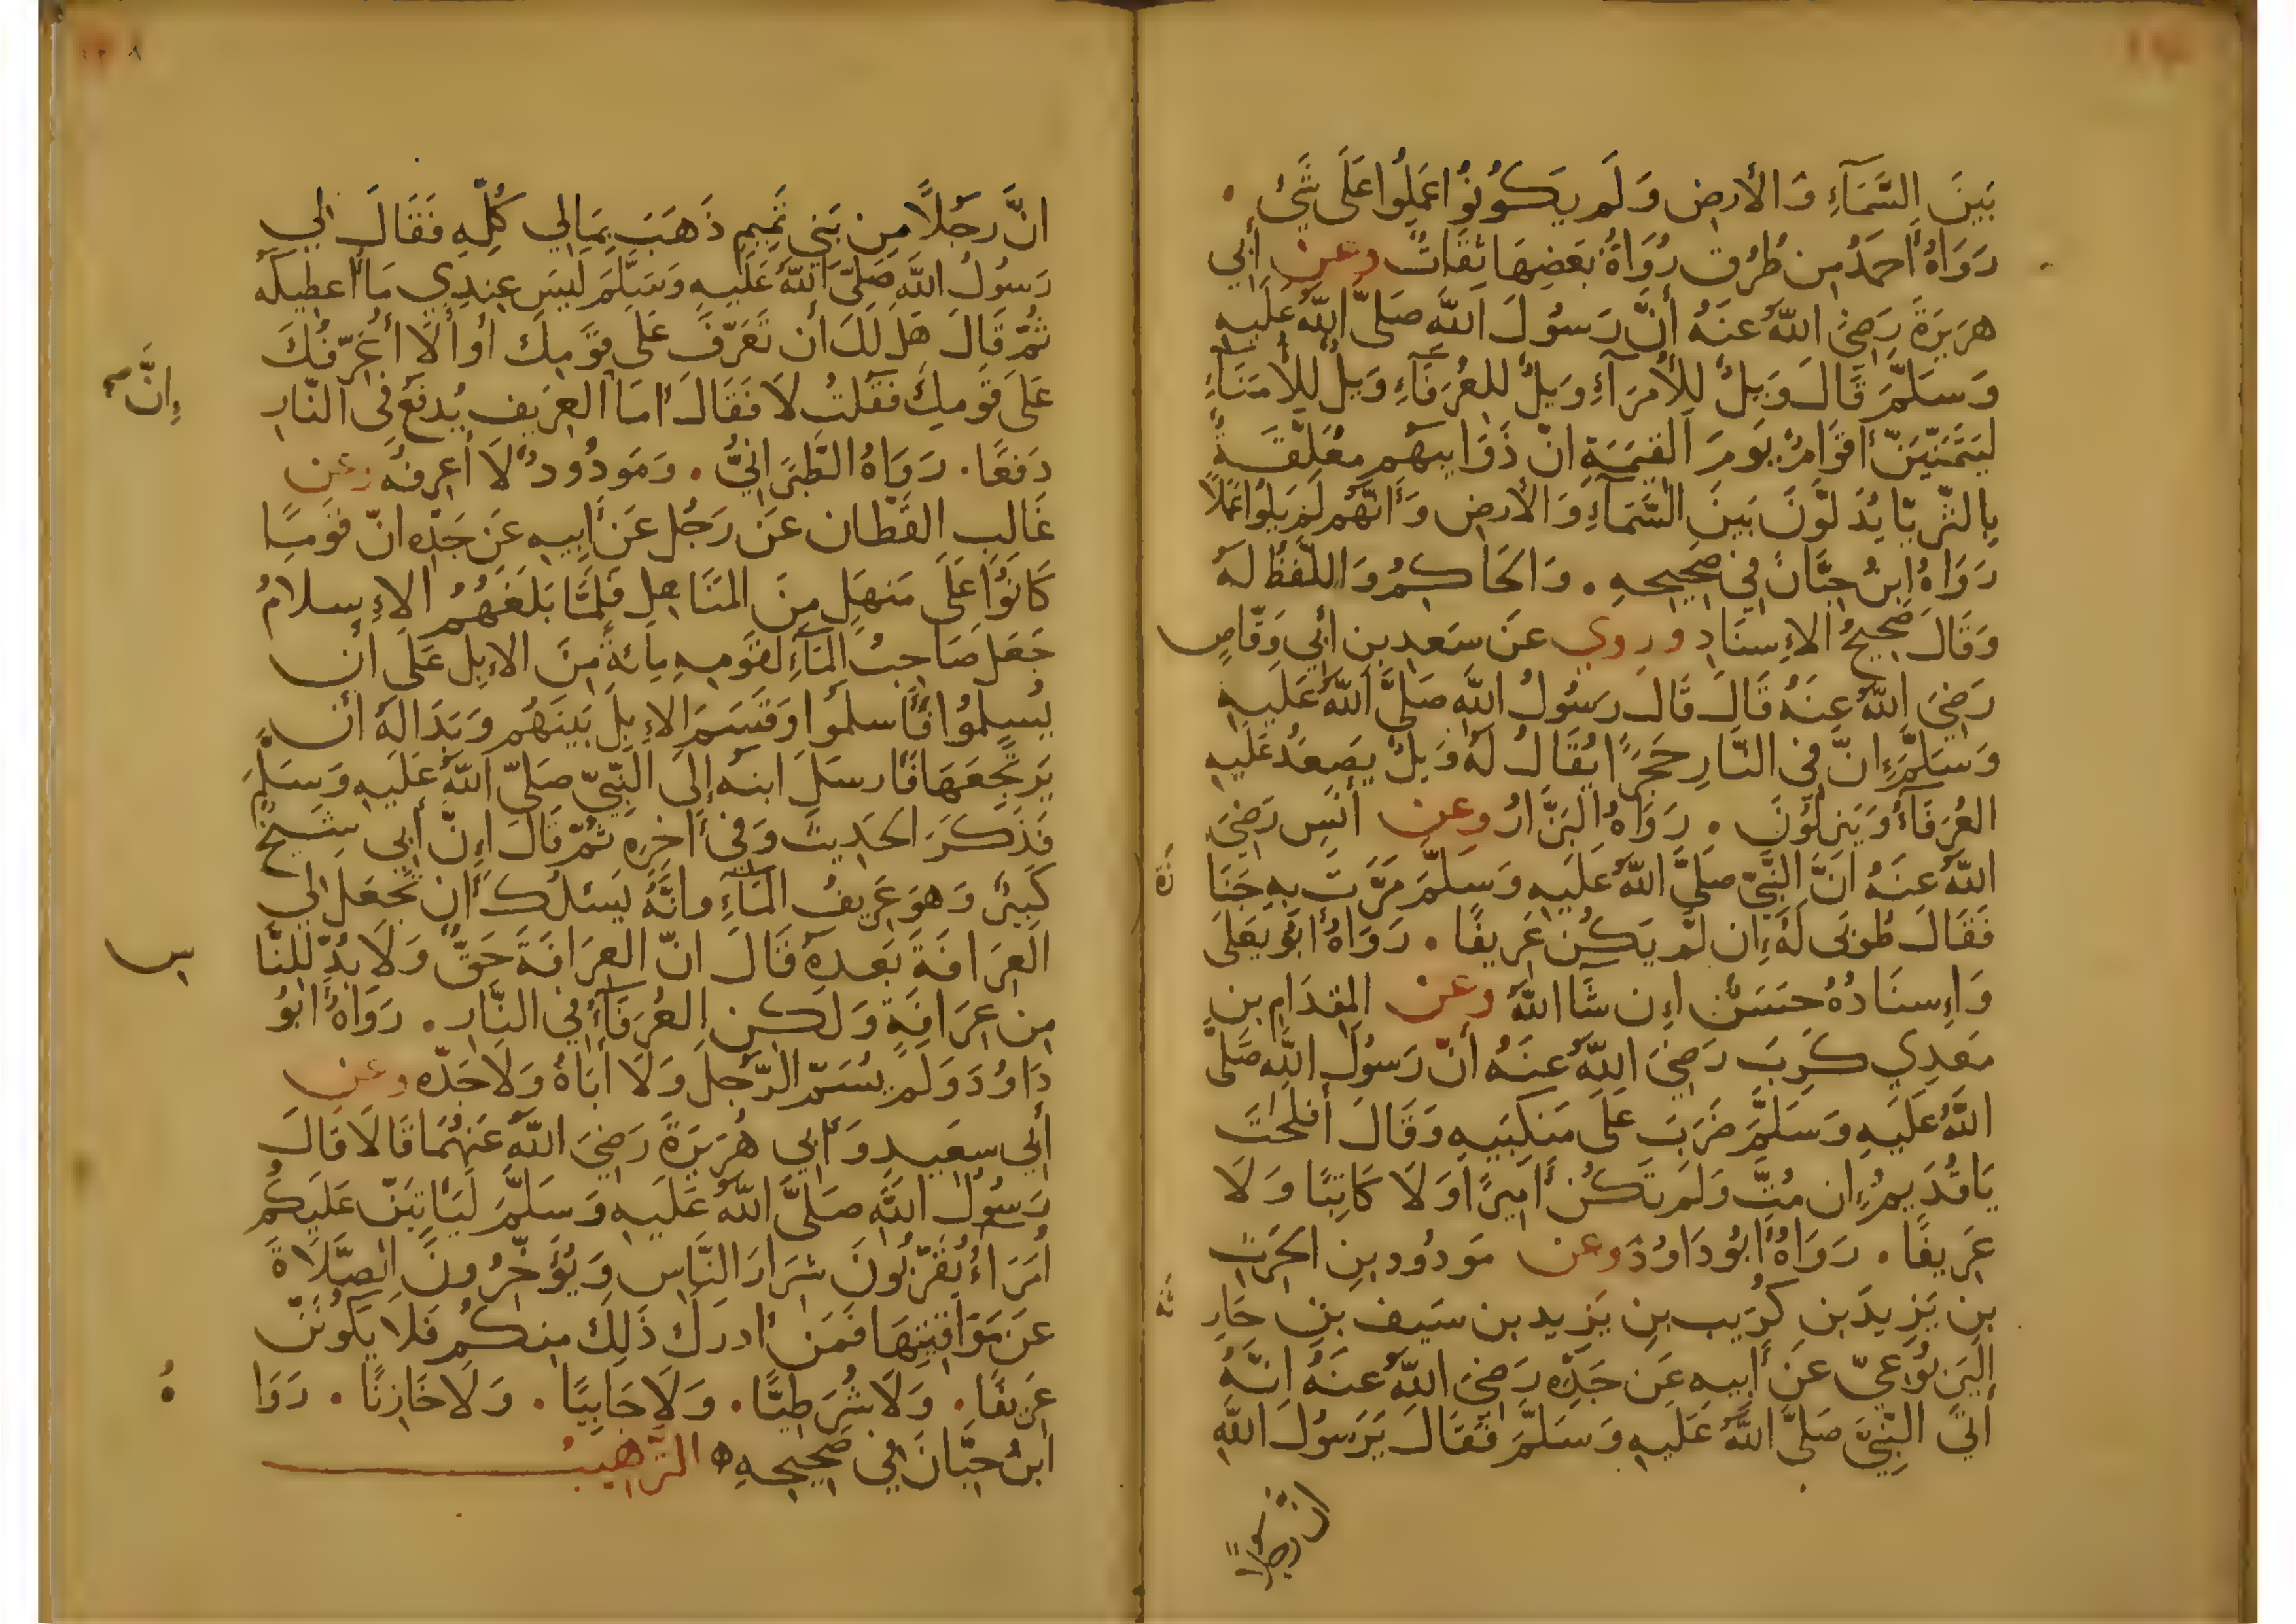 بَينَ السَّمَآءِ وَالأَرضِ وَلَم يَكُونُوا عَمِلُوا عَلَى شَيْءٍ .
رَوَاهُ أَحمَدُ مِن طُرُقٍ رُوَاةُ بَعضِهَا ثِقَاتٌ وعن أبي
هُرَيرَةَ رَضِيَ اللهُ عَنهُ أَنَّ رَسُولَ اللهِ صَلَّى اللهُ عَلَيهِ
وَسَلَّمَ قَالَ وَيلٌ لِلأُمَرَآءِ وَيلٌ للعُرَفَآءِ وَيلٌ لِلأُمَنَآءِ
لَيَتَمَنَّيَنَّ أَقوَامٌ يَومَ القِيَمَةِ انّ ذَوَايِبَهُم مُعَلَّقَةٌ
بِالثّرَيّا يُدَلَّونَ بَينَ السَّمَآءِ وَالأَرضِ وَأَنَّهُم لَم يَلُوا عَمَلاً
رَوَاهُ ابنُ حِبَّانَ في صَحِيحِهِ . وَالحَاكِمُ وَاللَّفظُ لَهُ
وَقَالَ صَحِيحُ الإِسنَادِ وروي عَن سَعدِ بنِ أَبي وَقّاصٍ
رَضِيَ اللهُ عَنهُ قَالَ قَالَ رَسُولُ اللهِ صَلَّى اللهُ عَلَيهِ
وَسَلَّمَ إِنّ في النّارِ حَجَرًا يُقَالُ لَهُ وَيلٌ يَصعَدُ عَلَيهِ
العُرَفَآءُ وَيَنزِلُونَ . رَوَاهُ البَزَّارُ وعن أنَسٍ رَضِيَ
اللهُ عَنهُ انَّ النَّبِيَّ صَلَّى اللهُ عَلَيهِ وَسَلَّمَ مَرَّت بِهِ جَنَا
زَة
فَقَالَ طُوبَى لَهُ إِن لَم يَكُن عَرِيفًا . رَوَاهُ أَبُو يَعلَى
وَإِسنَادُهُ حَسَنٌ إِن شَا اللهُ وعن المِقدَامِ بنِ
مَعدِي كَرِبَ رَضِيَ اللهُ عَنهُ أنّ رَسُولَ اللهِ صَلَّى
اللهُ عَلَيهِ وَسَلَّمَ ضَرَبَ عَلَى مَنكِبَيهِ وَقَالَ أَفلَحتَ
يَا قُدَيمُ إِن مُتَّ وَلَم تَكُن أَمِيرًا وَلَا كَاتِبًا وَلَا
عَرِيفًا . رَوَاهُ أَبُو دَاوُدَ وعن مَودُودِ بنِ الحَرثِ
بنِ يَزِيدَ بنِ كُرَيبِ بنِ يَزِيدِ بنِ سَيفِ بنِ حَارِ
ثَة
اليَربُوعِيّ عَن أَبِيهِ عَن جَدِّهِ رَضِيَ اللهُ عَنهُ انَّهُ
أَتَى النَّبِيَّ صَلَّى اللهُ عَلَيهِ وَسَلَّمَ فَقَالَ يَرَسُولَ اللهِ
انَّ رَجُلاً
انَّ رَجُلاً مِن بَني تَمِيمٍ ذَهَبَ بِمَالِي كُلِّهِ فَقَالَ لِي
رَسُولُ اللهِ صَلَّى اللهُ عَلَيهِ وَسَلَّمَ لَيسَ عِندِي مَا أُعطِيكَهُ
ثُمَّ قَالَ هَل لَكَ أن تَعَرَّفَ عَلَى قَومِكَ أو أَلَا أُعَرِّفُكَ
عَلَى قَومِكَ فَقُلتُ لَا فَقَالَ أمَا العَرِيف يُدفَع في النّارِ
إِنَّ
دَفعًا . رَوَاهُ الطَّبَرَانِيُّ . وَمَودُود لَا أَعرِفُه وعن
غَالِب القَطّان عَن رَجُل عَن أَبِيهِ عَن جَدِّهِ انّ قَومًا
كَانُوا عَلَى مَنهَلٍ مِنَ المَنَاهِلِ فَلَمَّا بَلَغَهُمُ الإِسلَامُ
جَعَلَ صَاحِبُ المَآءِ لقَومِهِ مِائَةً مِنَ الإِبِلِ عَلَى أن
يُسلِمُوا فَأَسلَمُوا وَقَسَمَ الإِبِلَ بَينَهُم وَبَدَا لَهُ أن
يَرتَجِعَهَا فَأَرسَلَ ابنَهُ إِلَى النَّبِيّ صَلَّى اللهُ عَلَيهِ وَسَلَّمَ
فَذَكَرَ الحَدِيثَ وَفي أَخِرِهِ ثُمّ قَالَ إِنَّ أَبِي شَيخٌ
كَبِيرٌ وَهوَ عَرِيفُ المَآءِ وانَّهُ يَسئَلُكَ أَن تَجعَلَ لِي
العِرَافَةَ بَعدَهُ قَالَ انّ العِرَافَةَ حَقٌّ وَلَا بُدَّ لِلنَّا
س
مِن عِرَافَةٍ وَلَكِن العُرَفَآءُ في النَّارِ . رَوَاهُ أَبُو
دَاوُدَ وَلَم يُسَمِّ الرَّجُلَ وَلَا أَبَاهُ وَلَا جَدّه وعن
أَبي سَعِيدٍ وَأَبِي هُرَيرَةَ رَضِيَ اللهُ عَنهُمَا قَالَا قَالَ
رَسُولُ اللهِ صَلَّى اللهُ عَلَيهِ وَسَلَّمَ لَيَأتِيَنَّ عَلَيكُم
أُمَرَاءُ يُقَرِّبُونَ شِرَارَ النَّاسِ وَيُؤَخِّرُونَ الصَّلَاةَ
عَن مَوَاقِيتِهَا فَمَن أدرَكَ ذَلِكَ مِنكُم فَلَا يَكُونَنّ
عَرِيفًا . وَلَا شُرَطِيًّا . وَلَا جَابِيًا . وَلَا خَازِنًا . رَوَا
هُ
ابنُ حِبَّانَ في صَحِيحِهِ ه التَّرهيبُ